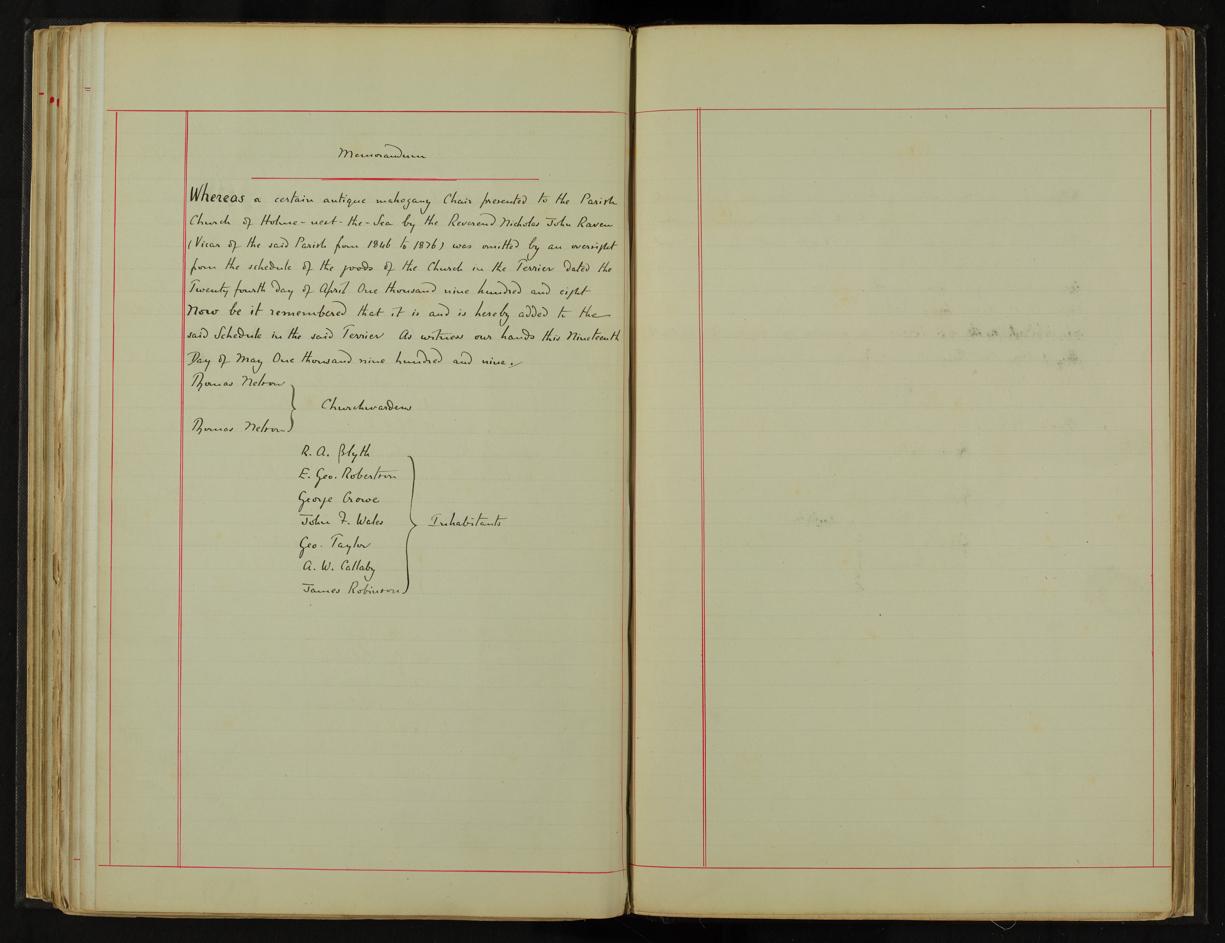 Memorandum
Whereas a certain antique mahogany Chair presented to the Parish
Church of Holme-next-the-Sea by the Reverend Nicholas John Raven
(Vicar of the said Parish from 1846 to 1876) was omitted by an oversight
from the schedule of the goods of the Church in the Terrier dated the
Twenty fourth Day of April One thousand nine hundred and eight
Now be it remembered that it is and is hereby added to the
said Schedule in the said Terrier As witness our hands this Nineteenth
Day of May One thousand nine hundred and nine.
Thomas Nelson
Churchwardens
Thomas Nelson
R. A. Blyth
E. Geo. Robertson
George Crowe
John F. Wales
Inhabitants
Geo. Taylor
A. W. Callaby
James Robinson